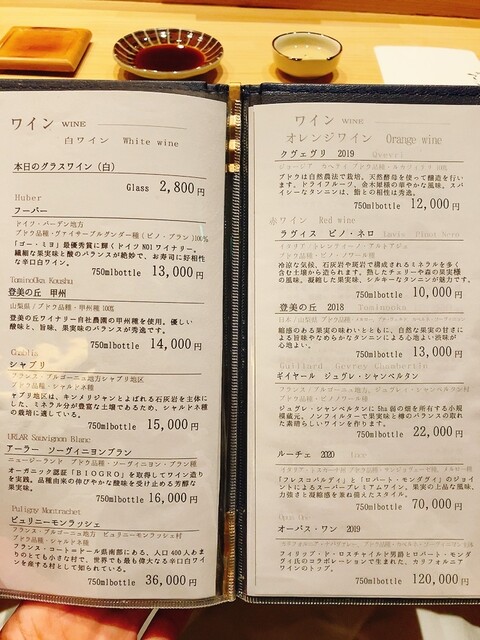 ワイン WINE
白ワイン White wine
本日のグラスワイン（白）
Glass 2,800円
Huber
フーバー
ドイツ・バーデン地方
ブドウ品種・ヴァイサーブルグンダー種（ピノ・ブラン）100%
「ゴー・ミヨ」最優秀賞に輝くドイツNO1ワイナリー。
繊細な果実味と酸のバランスが絶妙で、お寿司に好相性
な辛口白ワイン。
750mlbottle 13,000円
TominoOka Koushu
登美の丘 甲州
山梨県/ブドウ品種・甲州種 100%
登美の丘ワイナリー自社農園の甲州種を使用。優しい
酸味と、旨味、果実味のバランスが秀逸です。
750mlbottle 14,000円
Chablis
シャブリ
フランス・ブルゴーニュ地方シャブリ地区
ブドウ品種・シャルドネ種
ャブリ地区は、キンメリジャンとよばれる石灰岩を主体に
した、ミネラル分が豊富な土壌であるため、シャルドネ種
の栽培に適している。
750mlbottle 15,000円
URLAR Sauvignon Blanc
アーラー ソーヴィニヨンブラン
ニュージーランド ブドウ品種・ソーヴィニヨン・ブラン種
オーガニック認証「BIOGRO」を取得してワイン造り
を実践。品種由来の伸びやかな酸味を受け止める芳醇な
果実味。
750mlbottle 16,000円
Puligny Montrachet
ピュリニーモンラッシェ
フランス・ブルゴーニュ地方 ピュリニーモンラッシェ村
ブドウ品種・シャルドネ種
フランス・コートドール県南部にある、人口400人あま
りのとても小さな村で、世界でも最も偉大なる辛口白ワイ
ンを産する村として知られている。
750mlbottle 36,000円
ワイン WINE
オレンジワイン Orange wine
クヴェヴリ 2019 Qvevri
ブドウは自然農法で栽培。天然酵母を使って醸造を行い
ます。ドライフルーツ、金木犀様の華やかな風味。スパ
イシーなタンニンは、脂との相性は秀逸。
12,000円
赤ワイン Red wine
ラヴィス ピノ・ネロ Lavis Pinot Nero
イタリア/トレンティーノ・アルトアジュ
ブドウ品種・ピノ・ノワール種
冷涼な気候、石灰岩や斑岩で構成されるミネラルを多く
含む土壌から造られます。熟したチェリーや森の果実様
の風味。凝縮した果実味、シルキーなタンニンが魅力です。
750mlbottle 10,000円
登美の丘 2018 Tominooka
凝縮感のある果実の味わいとともに、自然な果実の甘さに
よる旨味やなめらかなタンニンによる心地よい渋味が
心地よい。
750mlbottle 13,000円
ギイヤール ジュヴレ・シャンベルタン
フランス・ブルゴーニュ地方、ジュヴレ・シャンベルタン村
ブドウ品種・ピノノワール種
ジュヴレ・シャンベルタンに5ha弱の畑を所有する小規
模蔵元、ノンフィルターで果実味と樽のバランスの取れ
た素晴らしいワインを作ります。
750mlbottle 22,000円
ルーチェ 2020 Luce
「フレスコバルディ」と「ロバート・モンダヴィ」のジョ
イントによるスーパープレミアムワイン。果実の上品な風味、
力強さと凝縮感を兼ね備えたスタイル。
750mlbottle 70,000円
Opus One
オーパス・ワン 2019
フィリップ・ド・ロスチャイルド男爵とロバート・モンダ
ヴィ氏のコラボレーションで生まれた、カリフォルニア
ワインのトップ。
750mlbottle 120,000円